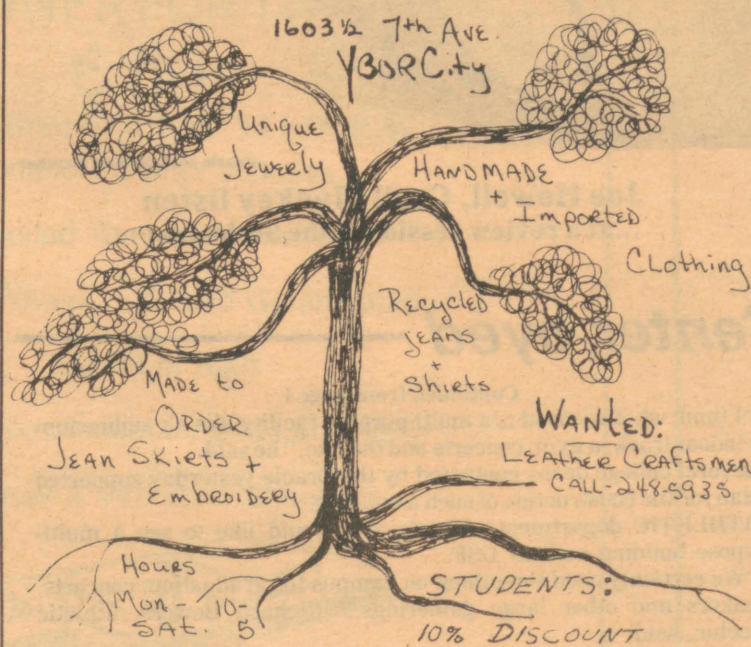 1603 ½ 7th Ave.
YBOR City
Unique
Jewerly
HANDMADE
+
Imported
Clothing
Recycled
jeans
+
Shirts
MADE to
ORDER
Jean Skirts +
Embroidery
WANTED:
Leather Craftsmen
CALL-248-5935
Hours
Mon. 10-
SAT. 5
STUDENTS:
10% DISCOUNT